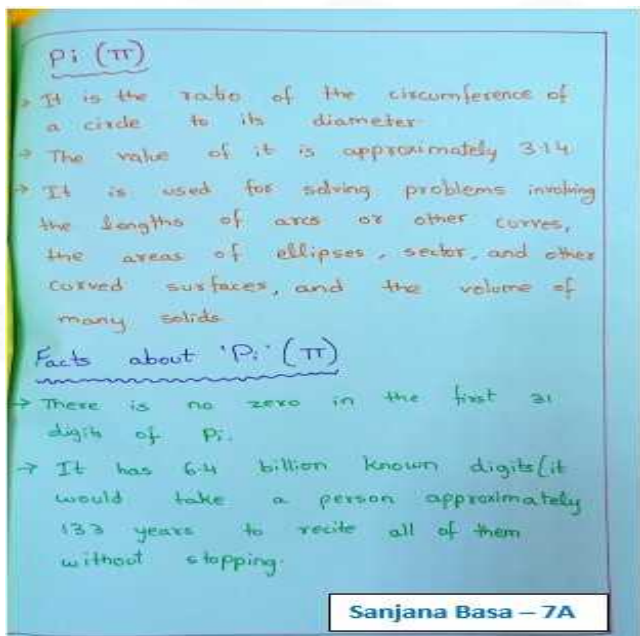 Pi (π)
→ It is the ratio of the circumference of
a circle to its diameter.
→ The value of it is approximately 3.14
→ It is used for solving problems involving
the lengths of arcs or other curves,
the areas of ellipses, sector, and other
curved surfaces, and the volume of
many solids.
Facts about 'Pi' (π)
→ There is no zero in the first 31
digits of Pi.
→ It has 6.4 billion known digits (it
would take a person approximately
133 years to recite all of them
without stopping.
Sanjana Basa – 7A